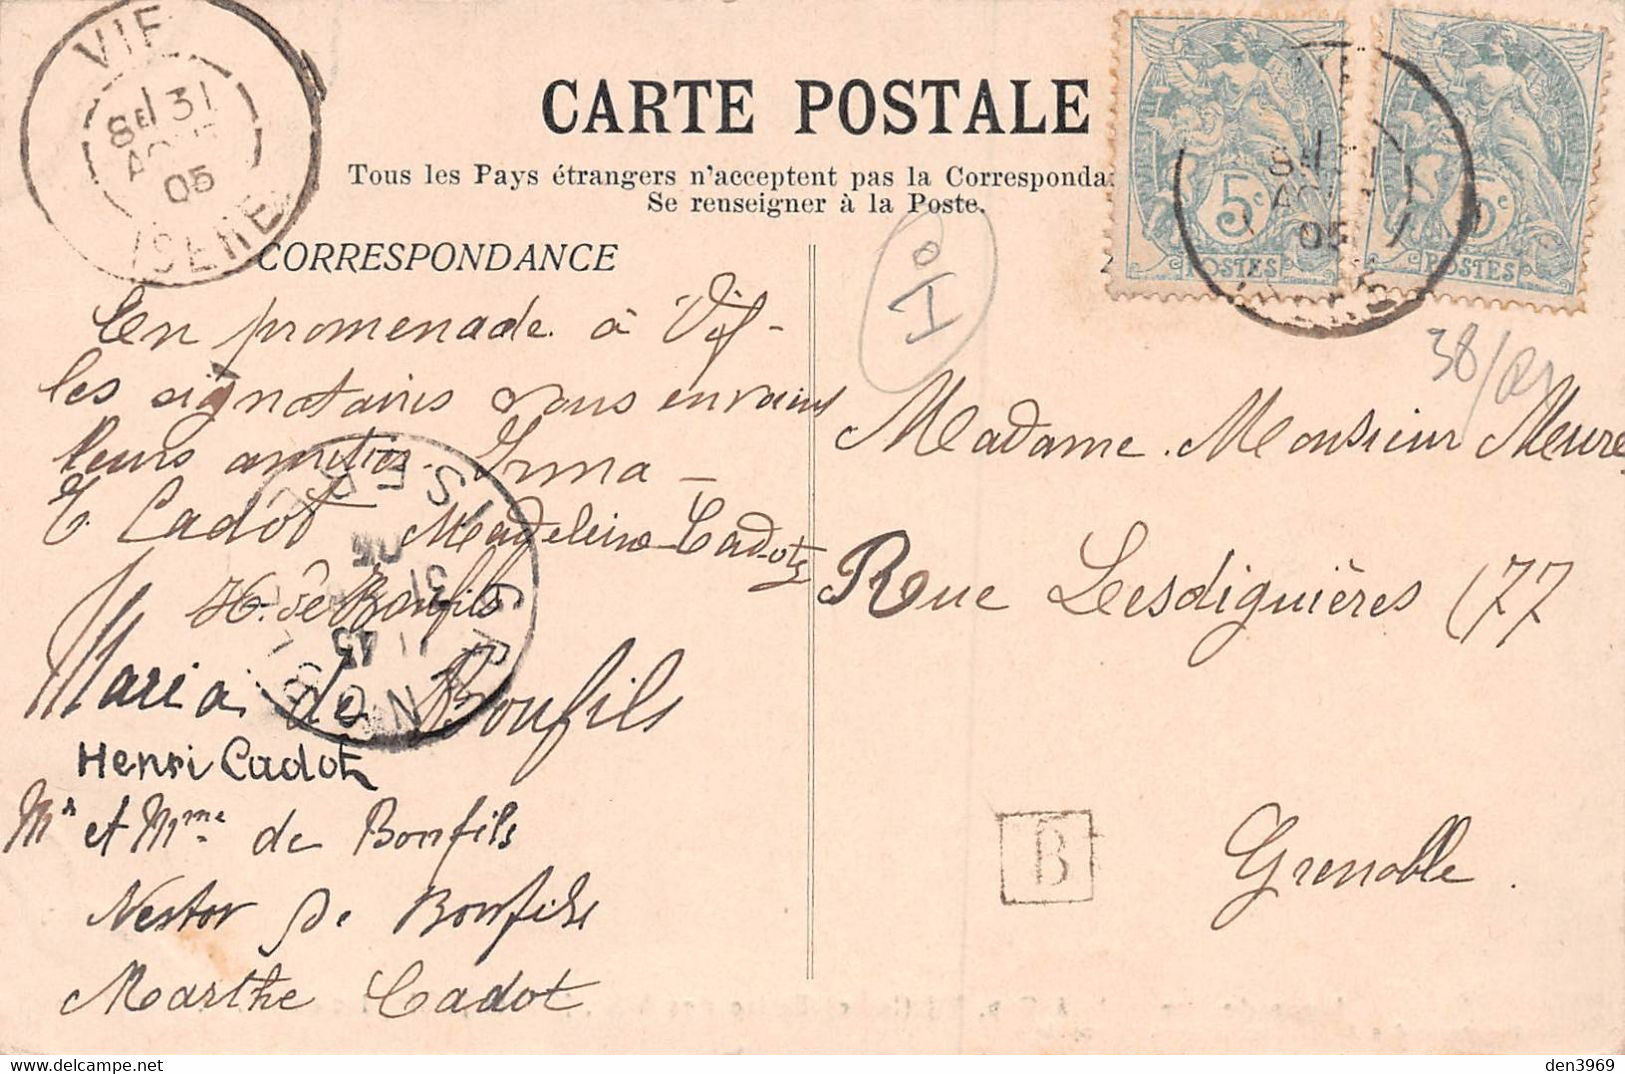 VIF
8E 31
05
ISERE
CARTE POSTALE
Tous les Pays étrangers n'acceptent pas la Corresponda
Se renseigner à la Poste.
5c
POSTES
5c
POSTES
05
CORRESPONDANCE
En promenade à Vif -
les signataires vous envoient
leurs amitiés. Irma -
E. Cadot Madeleine Cadot
H. de Bonfils
Maria de Bonfils
Henri Cadot
Mr et Mme de Bonfils
Nestor de Bonfils
Marthe Cadot
GRENOBLE
ISERE
31
45
10
38/
Madame. Monsieur Meure
Rue Lesdiguières 77
Grenoble.
B
den3969